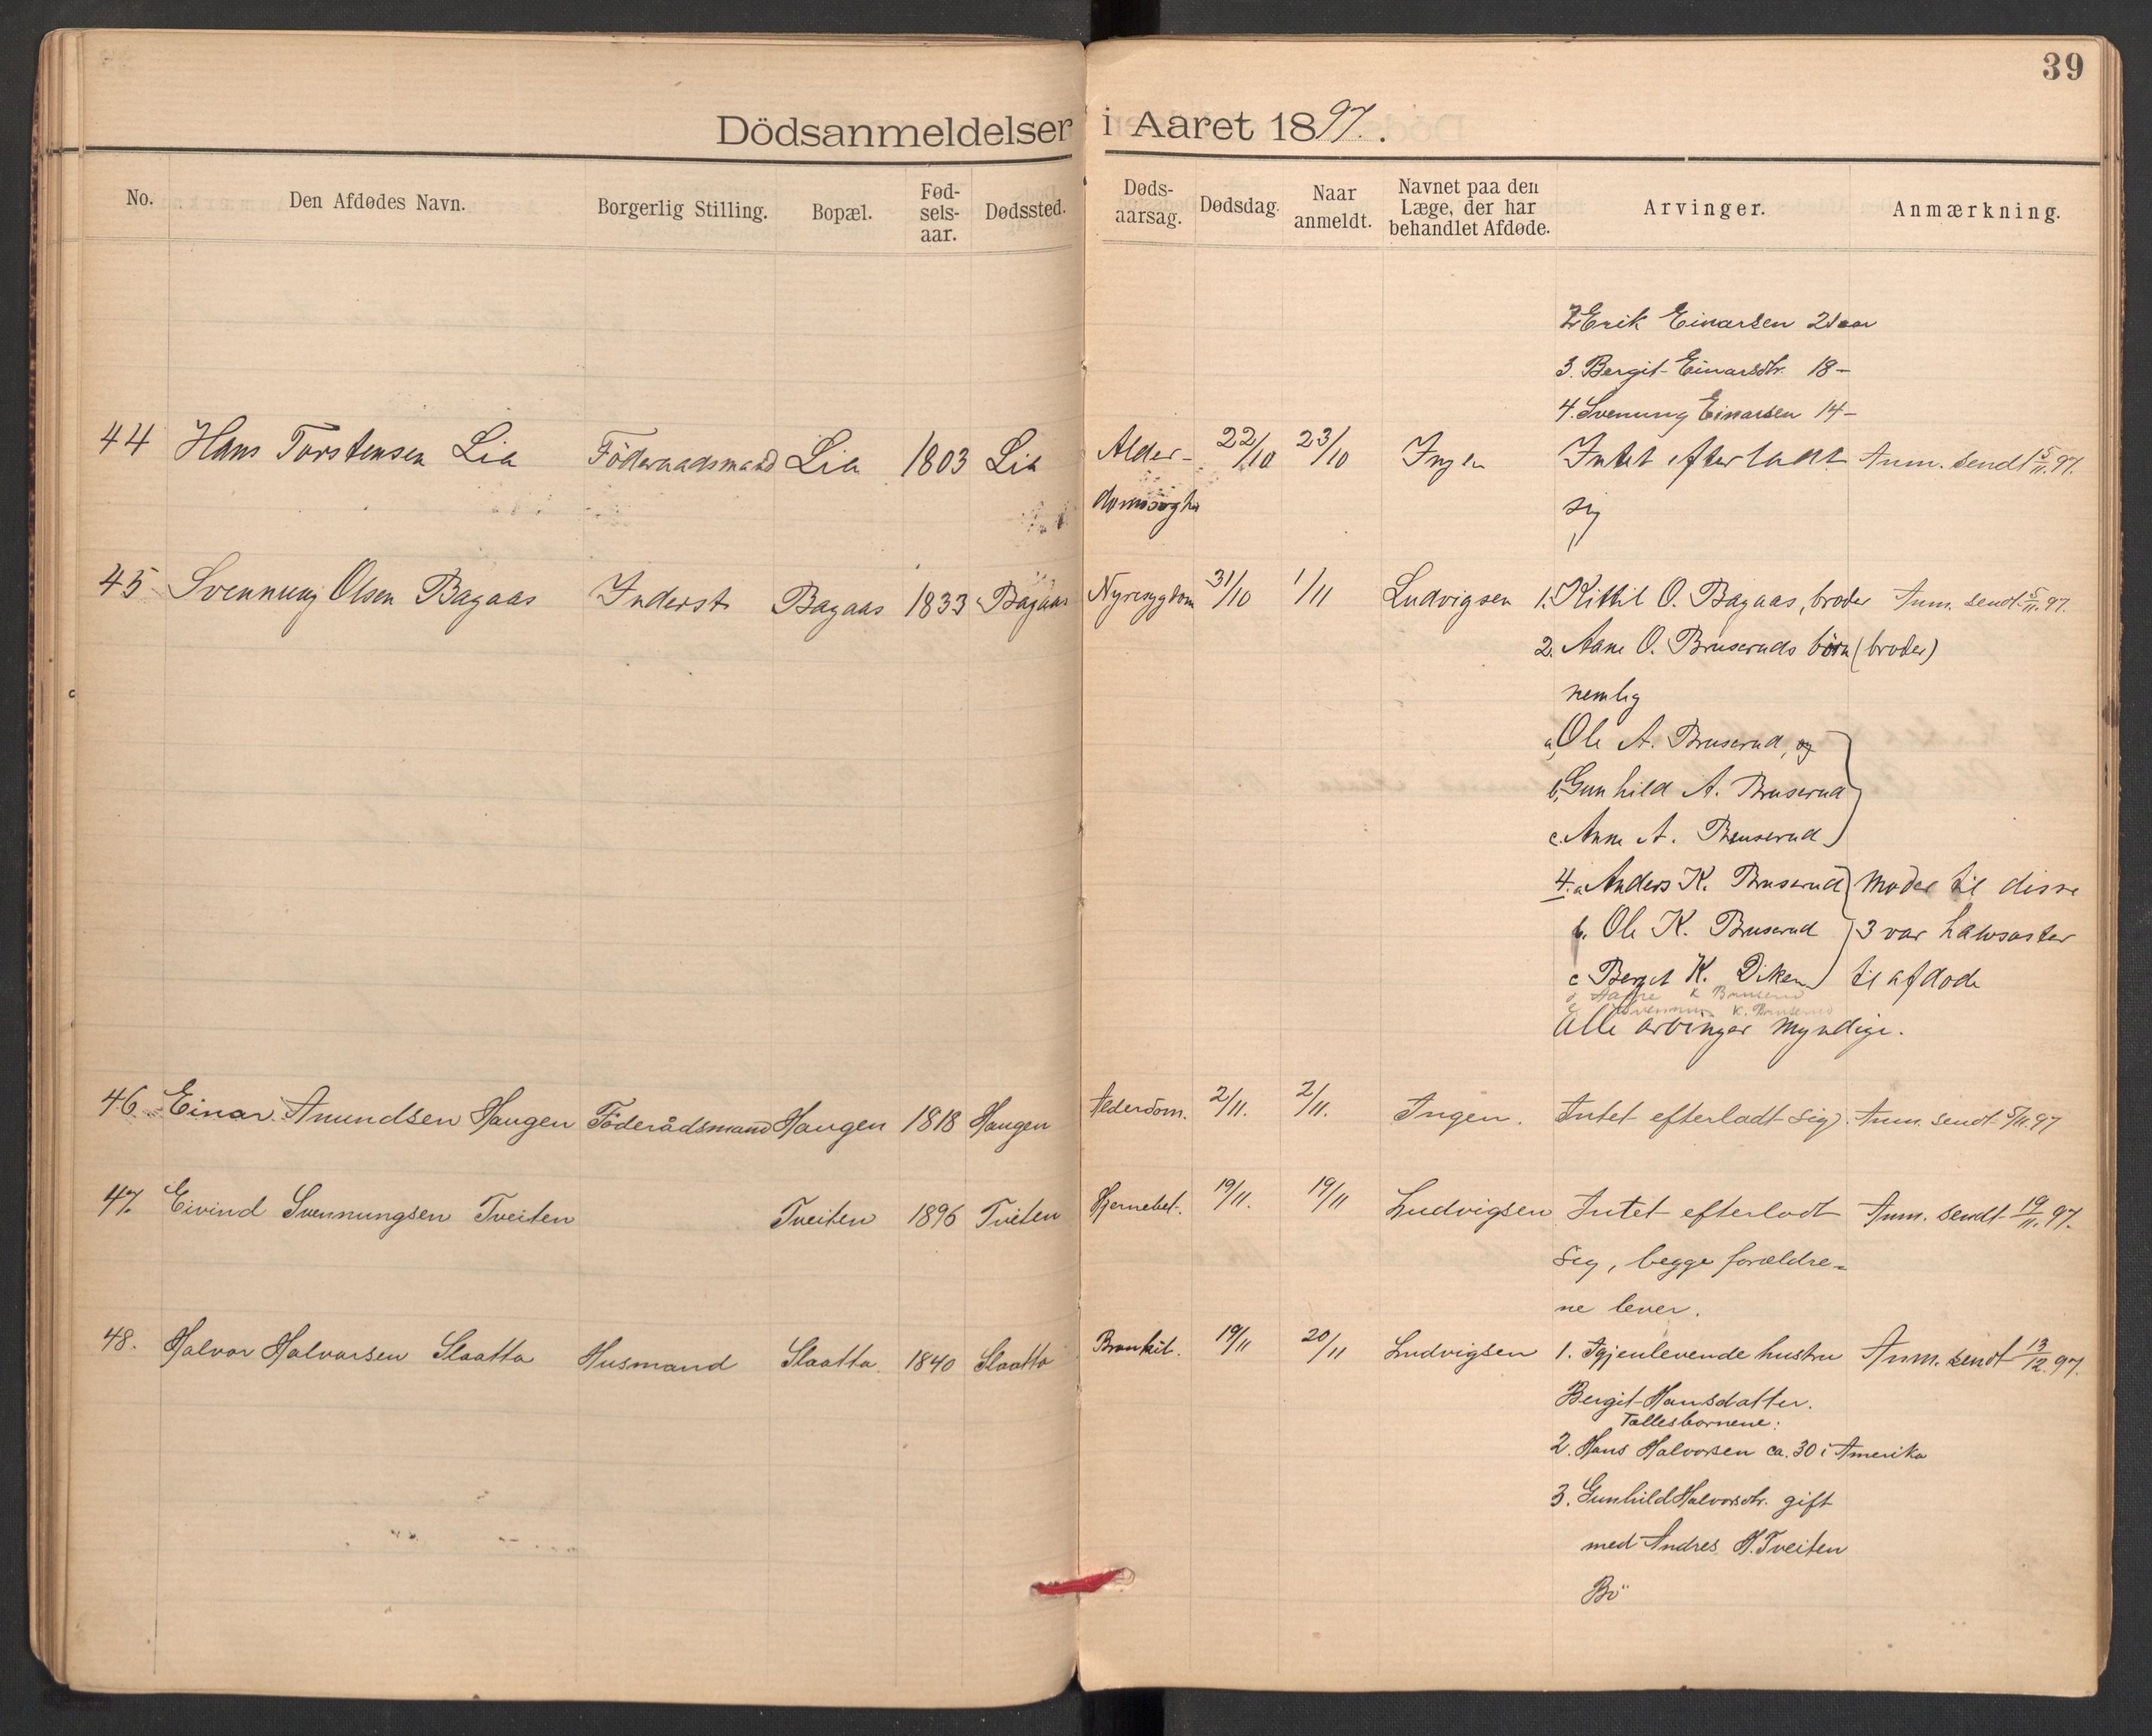 39
Dödsanmeldelser i Aaret 1897.
No. Den Afdødes Navn. Borgerlig Stilling. Bopæl. Fød-sels-aar. Dødssted. Døds-aarsag. Dødsdag. Naar anmeldt. Navnet paa den Læge, der har behandlet Afdøde. Arvinger. Anmærkning.
2. Erik Einarsen 21 aar
3. Bergit Einarsdtr. 18 –
4. Svenung Einarsen 14 –
44 Hans Torstensen Lia Föderaadsmand Lia 1803 Lia Alder- 22/10 23/10 Ingen Intet efterladt Anm. sendt 5/11. 97.
sig
45 Svennung Olsen Bagaas Inderst Bagaas 1833 Bagaas Nyresygdom 31/10 1/11 Ludvigsen 1. Kittil O. Bagaas, broder Anm. sendt 5/11. 97.
2. Aane O. Bruseruds börn (broder)
nemlig
a, Ole A. Bruserud, og
b, Gunhild A. Bruserud
c. Anne A. Bruserud
4. a Anders K. Bruserud Moder til disse
b. Ole K. Bruserud 3 var halvsøster
c Bergit K. Diken til afdøde
d Aane K Bruserud
e Svennung K. Bruserud
Alle arvinger myndige.
46 Einar Amundsen Haugen Föderådsmand Haugen 1818 Haugen Alderdom. 2/11. 2/11. Ingen. Intet efterladt sig. Anm. sendt 5/11. 97
47. Eivind Svennungsen Tveiten Tveiten 1896 Tveiten Hjernebet. 19/11. 19/11 Ludvigsen Intet efterladt Anm. sendt 19/11. 97.
sig, begge forældre-
ne lever.
48. Halvor Halvorsen Slaatta Husmand Slaatta 1840 Slaatta Bronkit. 19/11 20/11 Ludvigsen 1. Igjenlevende hustru Anm. sendt 13/12. 97.
Bergit Hansdatter.
Fællesbørnene:
2. Hans Halvorsen ca. 30 i Amerika
3. Gunhild Halvorsdtr. gift
med Andres H. Tveiten
Bö